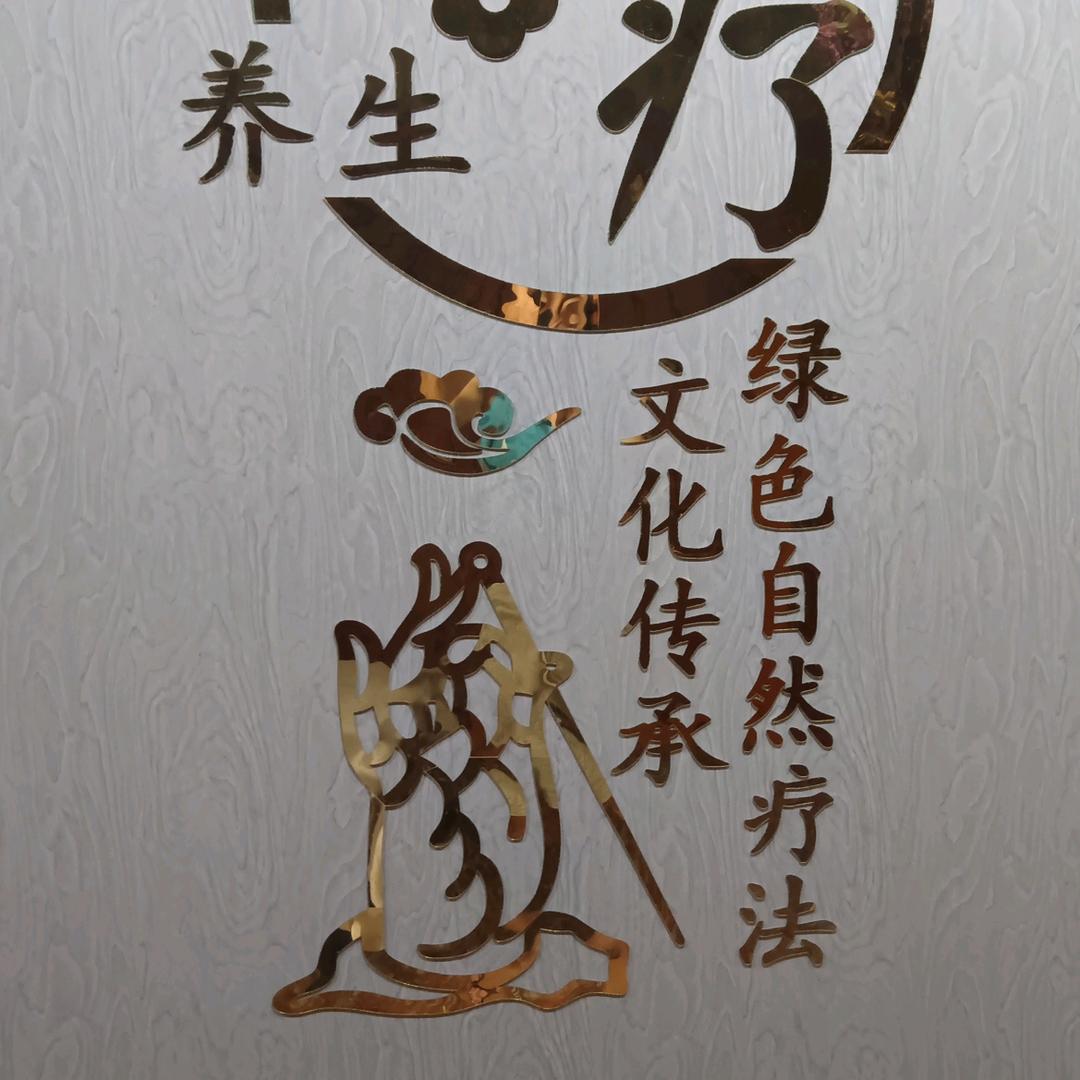 养生
疗
绿色自然疗法
文化传承